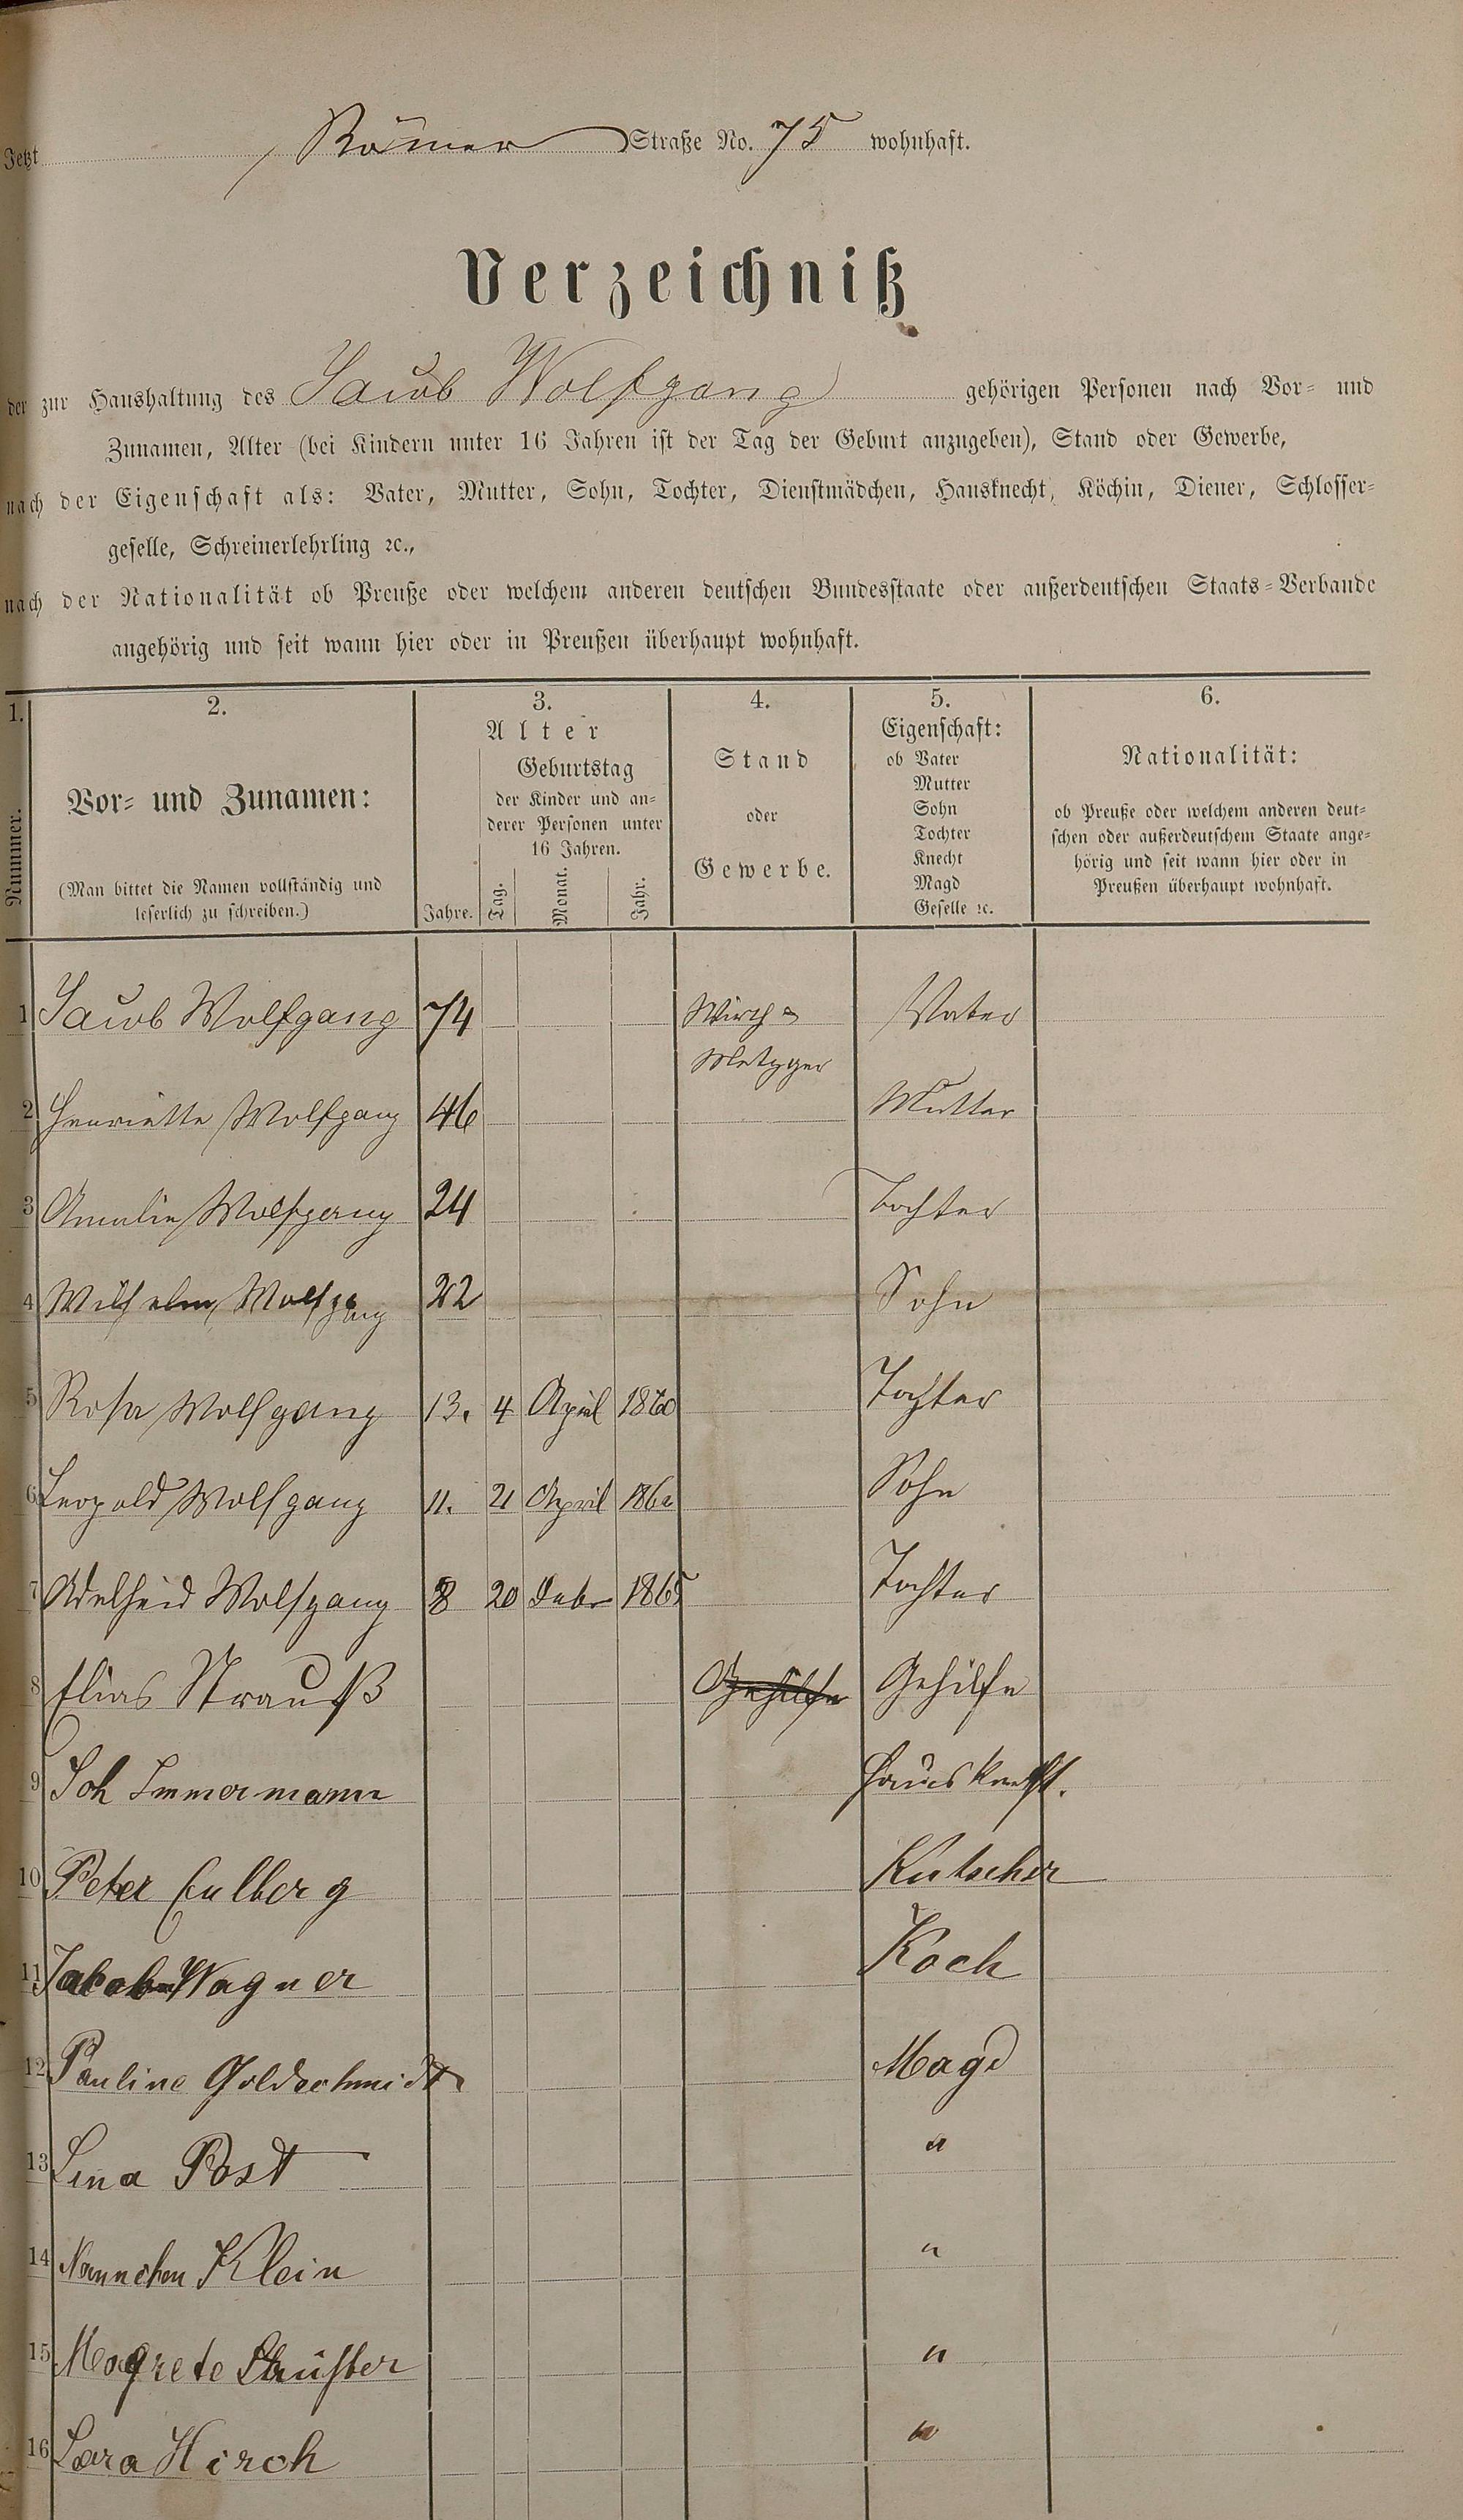 Jetzt Römer Straße No. 75 wohnhaft.
Verzeichniß
der zur Haushaltung des Jacob Wolfgang gehörigen Personen nach Vor- und
Zunamen, Alter (bei Kindern unter 16 Jahren ist der Tag der Geburt anzugeben), Stand oder Gewerbe,
nach der Eigenschaft als: Vater, Mutter, Sohn, Tochter, Dienstmädchen, Hausknecht, Köchin, Diener, Schlosser-
geselle, Schreinerlehrling ꝛc.,
nach der Nationalität ob Preuße oder welchem anderen deutschen Bundesstaate oder außerdeutschen Staats-Verbande
angehörig und seit wann hier oder in Preußen überhaupt wohnhaft.
1. 2. 3. 4. 5. 6.
Nummer.
Vor- und Zunamen:
(Man bittet die Namen vollständig und
leserlich zu schreiben.)
Alter
Jahre.
Geburtstag
der Kinder und an-
derer Personen unter
16 Jahren.
Tag. Monat. Jahr.
Stand
oder
Gewerbe.
Eigenschaft:
ob Vater
Mutter
Sohn
Tochter
Knecht
Magd
Geselle ꝛc.
Nationalität:
ob Preuße oder welchem anderen deut-
schen oder außerdeutschem Staate ange-
hörig und seit wann hier oder in
Preußen überhaupt wohnhaft.
1 Jacob Wolfgang 74 Wirth & Vater
Metzger
2 Henriette Wolfgang 46 Mutter
3 Amalie Wolfgang 24 Tochter
4 Wilhelm Wolfgang 22 Sohn
5 Rosa Wolfgang 13. 4 April 1860 Tochter
6 Leopold Wolfgang 11. 21 April 186 Sohn
7 Adelheid Wolfgang 8 20 1865 Tochter
8 Elias Strauß Gehilfe Gehilfe
9 Joh Immermann Hausknecht.
10 Peter Culberg Kutscher
11 Jacob Wagner Koch
12 Pauline Goldschmidt Magd
13 Lina Post "
14 Nannchen Klein "
15 Magrete "
16 Sara Hirch "